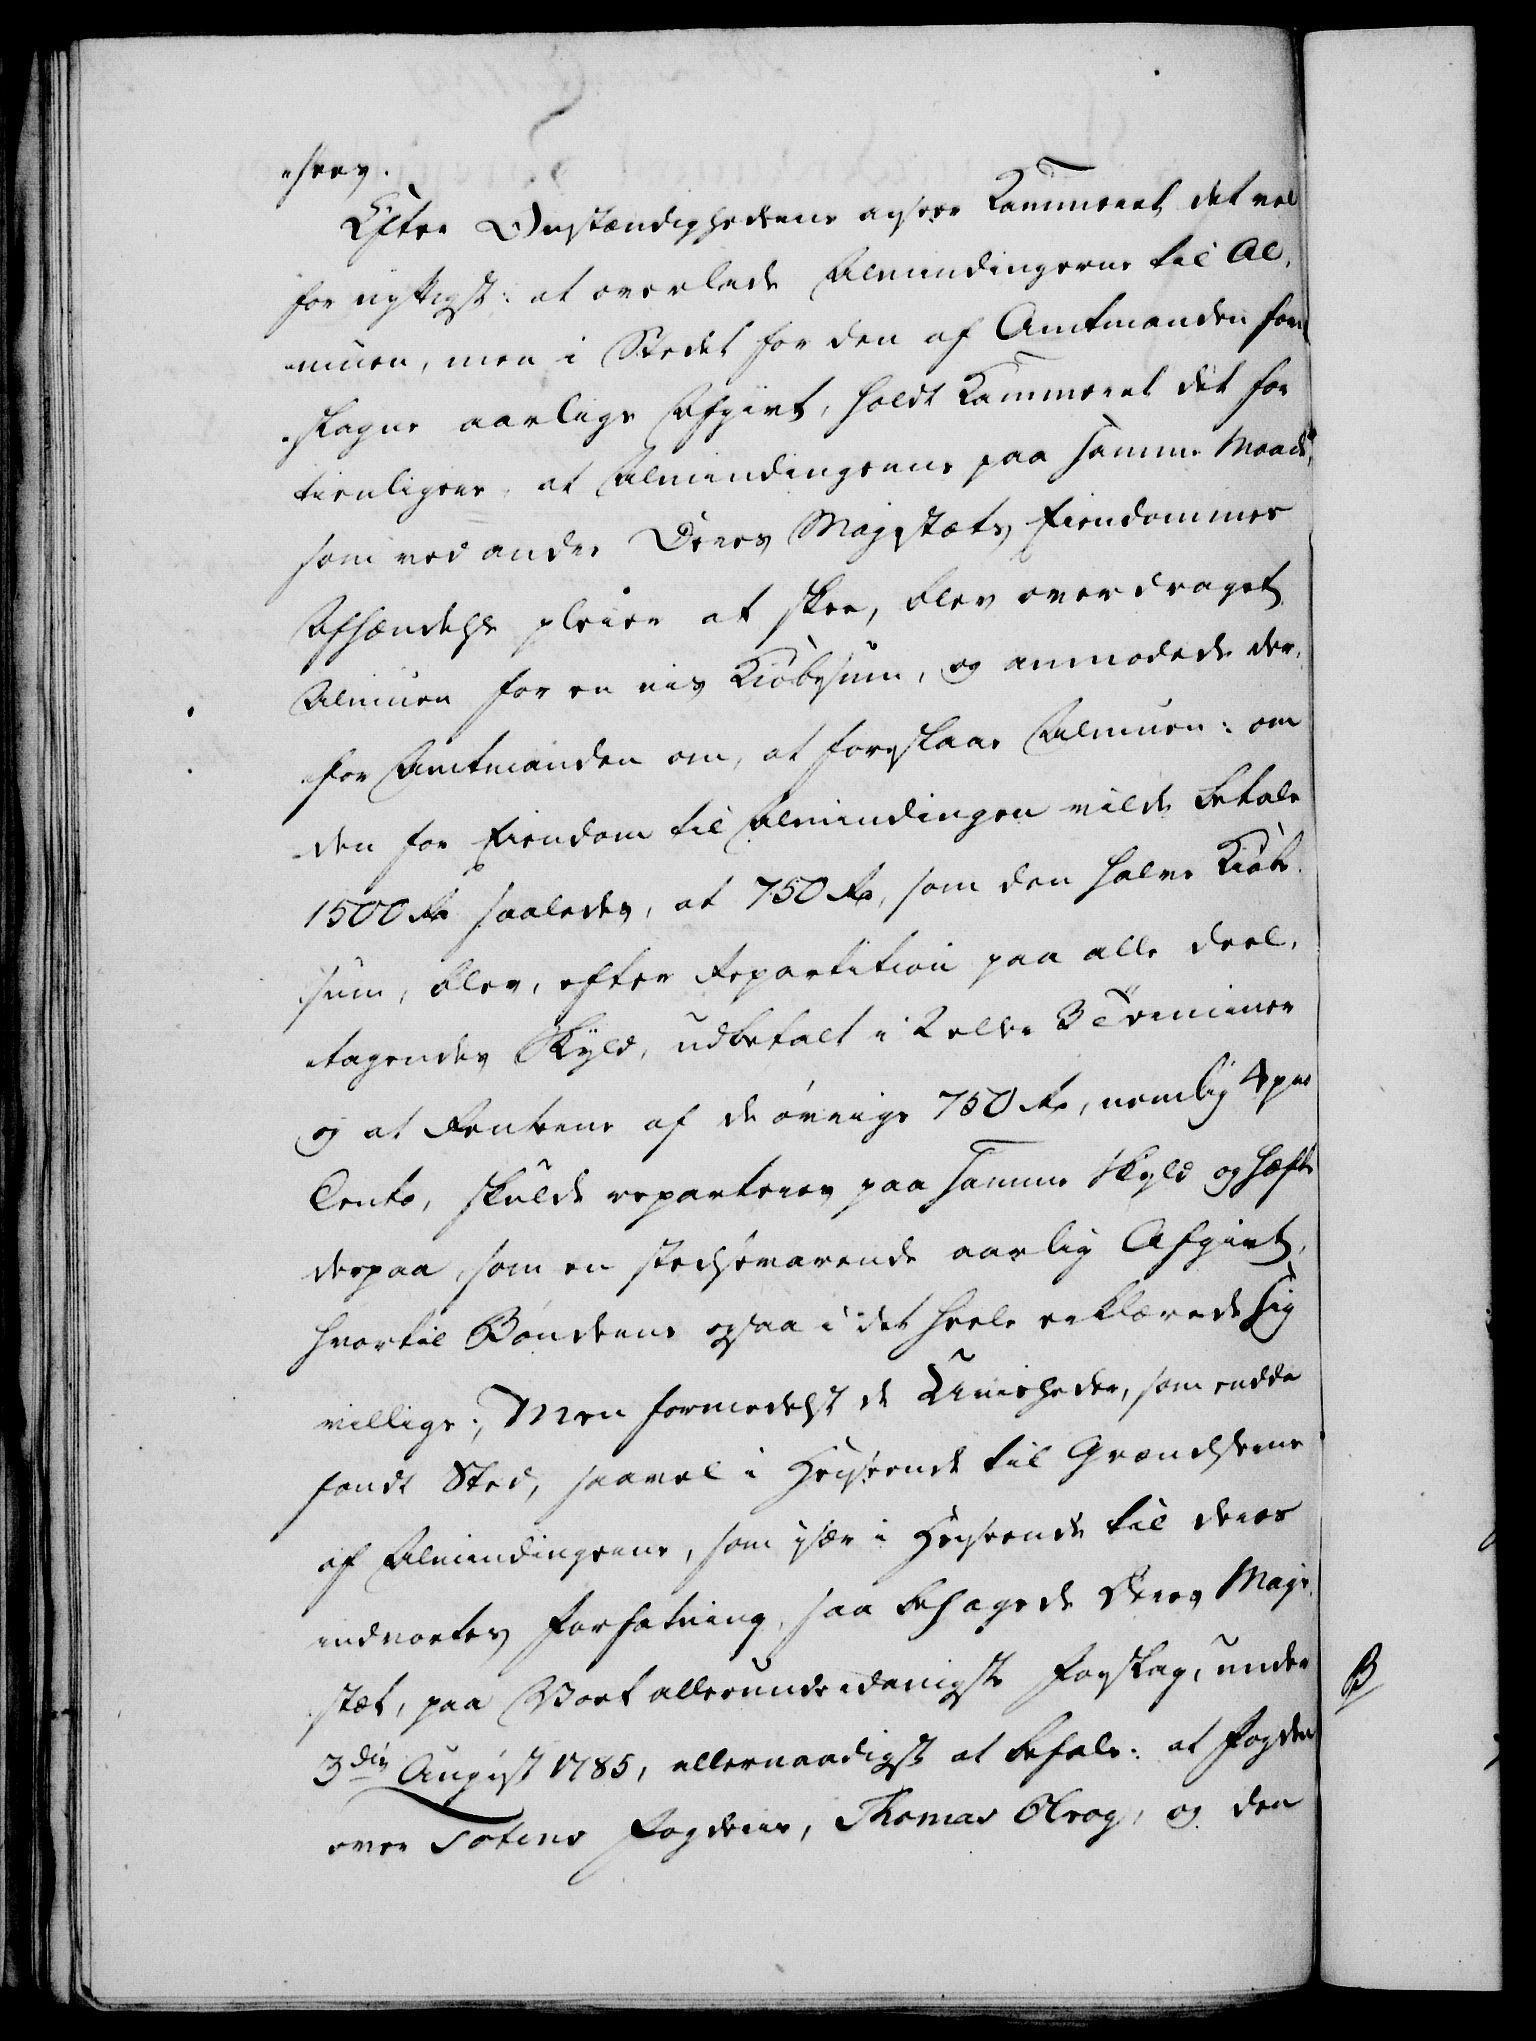 "hrev.
Efter Omstændighederne ansaae Kammeret det vel
for nyttigst: at overlade Almindingerne til Al,
"muen, men i Stedet for den af Amtmanden fore
"slagne aarlige Afgivt, holdt Kammeret det for
tienligere, at Almindingerne paa samme Maade,
som ved andre Deres Majestæts Eiendommes
Afhændelse pleier at skee, blev overdraget
Almuen for en vis Kiøbesum, og anmodede der,
"for Amtmanden om, at foreslaae Almuen: om
den for Eiendom til Almindingen vilde betale
1500 Rd saaledes, at 750 Rd, som den halve Kiøbe,
sum, blev, efter Repartition paa alle deel,
"tagendes Skyld, udbetalt i 2 eller 3 Terminer
og at Renterne af de øvrige 750 Rd, nemlig 4 pro
Cento, skulde reparteres paa samme Skyld og hæfte
derpaa, som en stedsevarende aarlig Afgivt,
hvortil Bønderne ogsaa i det heele erklærede sig
villige; Men formedelst de Uvisheder, som endda
fandt Sted, saavel i Henseende til Grændserne
af Almindingerne, som især i Henseende til deres
indvortes Forfatning, saa behagede Deres Maje,
stæt, paa Vort allerunderdanigste Forslag, under
3die August 1785, allernaadigst at befale: at Fogden
over Totens Fogderie, Thomas Olrog, og den
B